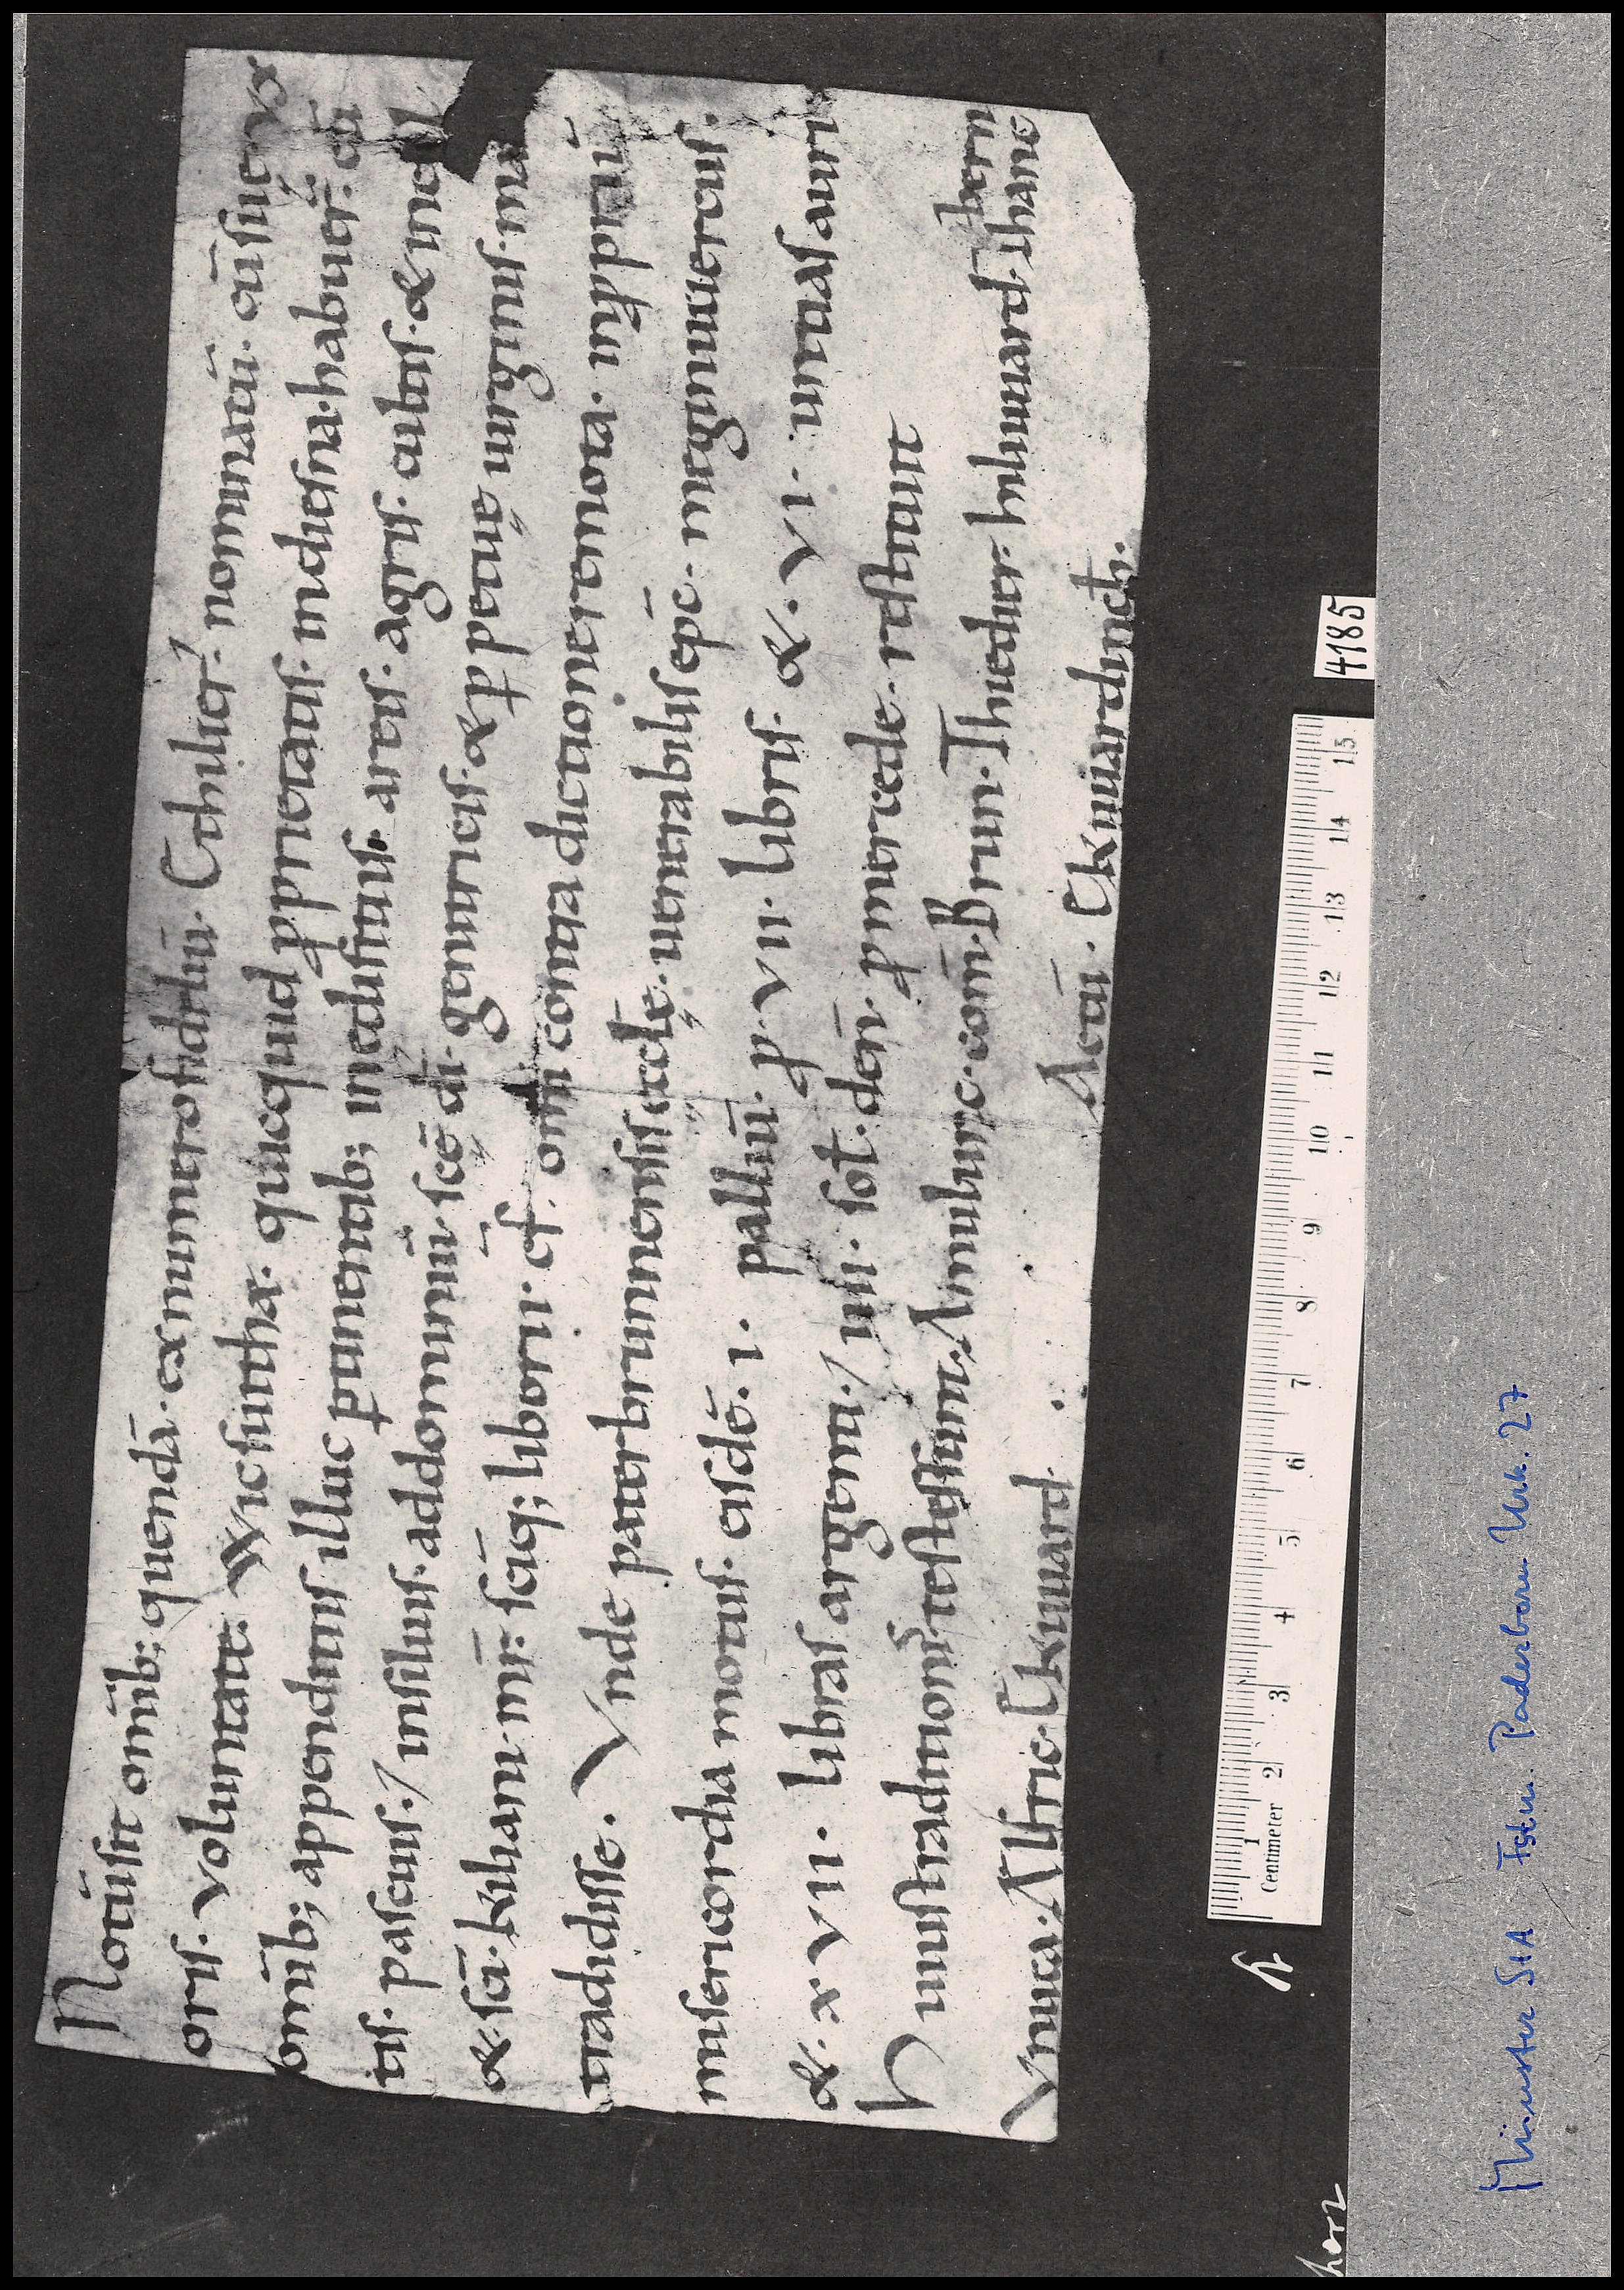 Notū sit omīb; quendā. ex numero fideliū. Ethiluer ̄. nominatū. cū sue ux
oris. voluntate. Wicsuithæ. quicquid ꝓprietatis. in diesna. habuer̄. cū
omīb; appenditiis illuc ꝑtinentib; in ędificiis. areis. agris. cultis. & incul
tis. pascuis./ in siluis. ad dominiū. scę̄ dī. genitricis. & ꝑpetuę uirginis. ma
&. scī. kiliani. mr̄. sc̄iq; liborii. cf̄. omī contradictione remota. in ꝓpriū
tradidisse. Unde paterbrunnensis ęccłę. uenerabilis ep̄c. meginuuercus.
misericordia motus. eisdē. i. palliū. ꝓ. vii. libris. &. vi. untias auri
&. xvii. libras argenti./ iiii. soł. den̄. ꝓ mercede. restituit
Huius traditionis testes sunt. Amulung. com̄. Brun. Thieder. hiluuard. Thanc
bern
Unuca. Alfric. Ekuuard. Actū. Ekuuardincth.
4185
Centimeter 1 2 3 4 5 6 7 8 9 10 11 12 13 14 15
Münster StA Fstm. Paderborn Urk. 27